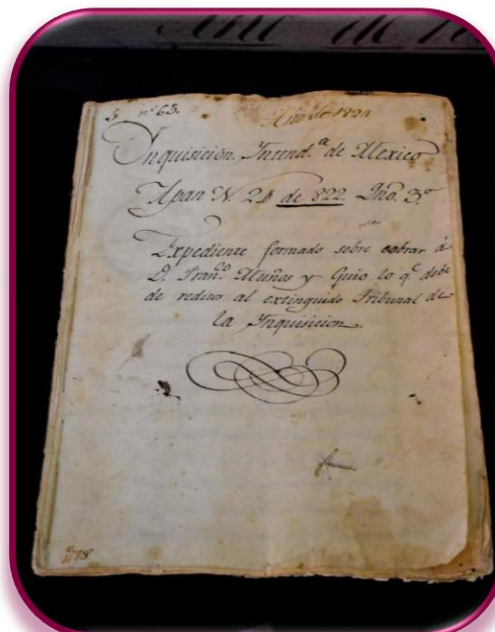 nº 63.
Año de 1821
Inquisicion. Yntend.ª de Mexico
Apan N. 24 de 822. Lño. 3.º
Expediente formado sobre cobrar á
D. Fran.co Muños y Guio lo q.e debe
de reditos al extinguido Tribunal de
la Ynquisicion.